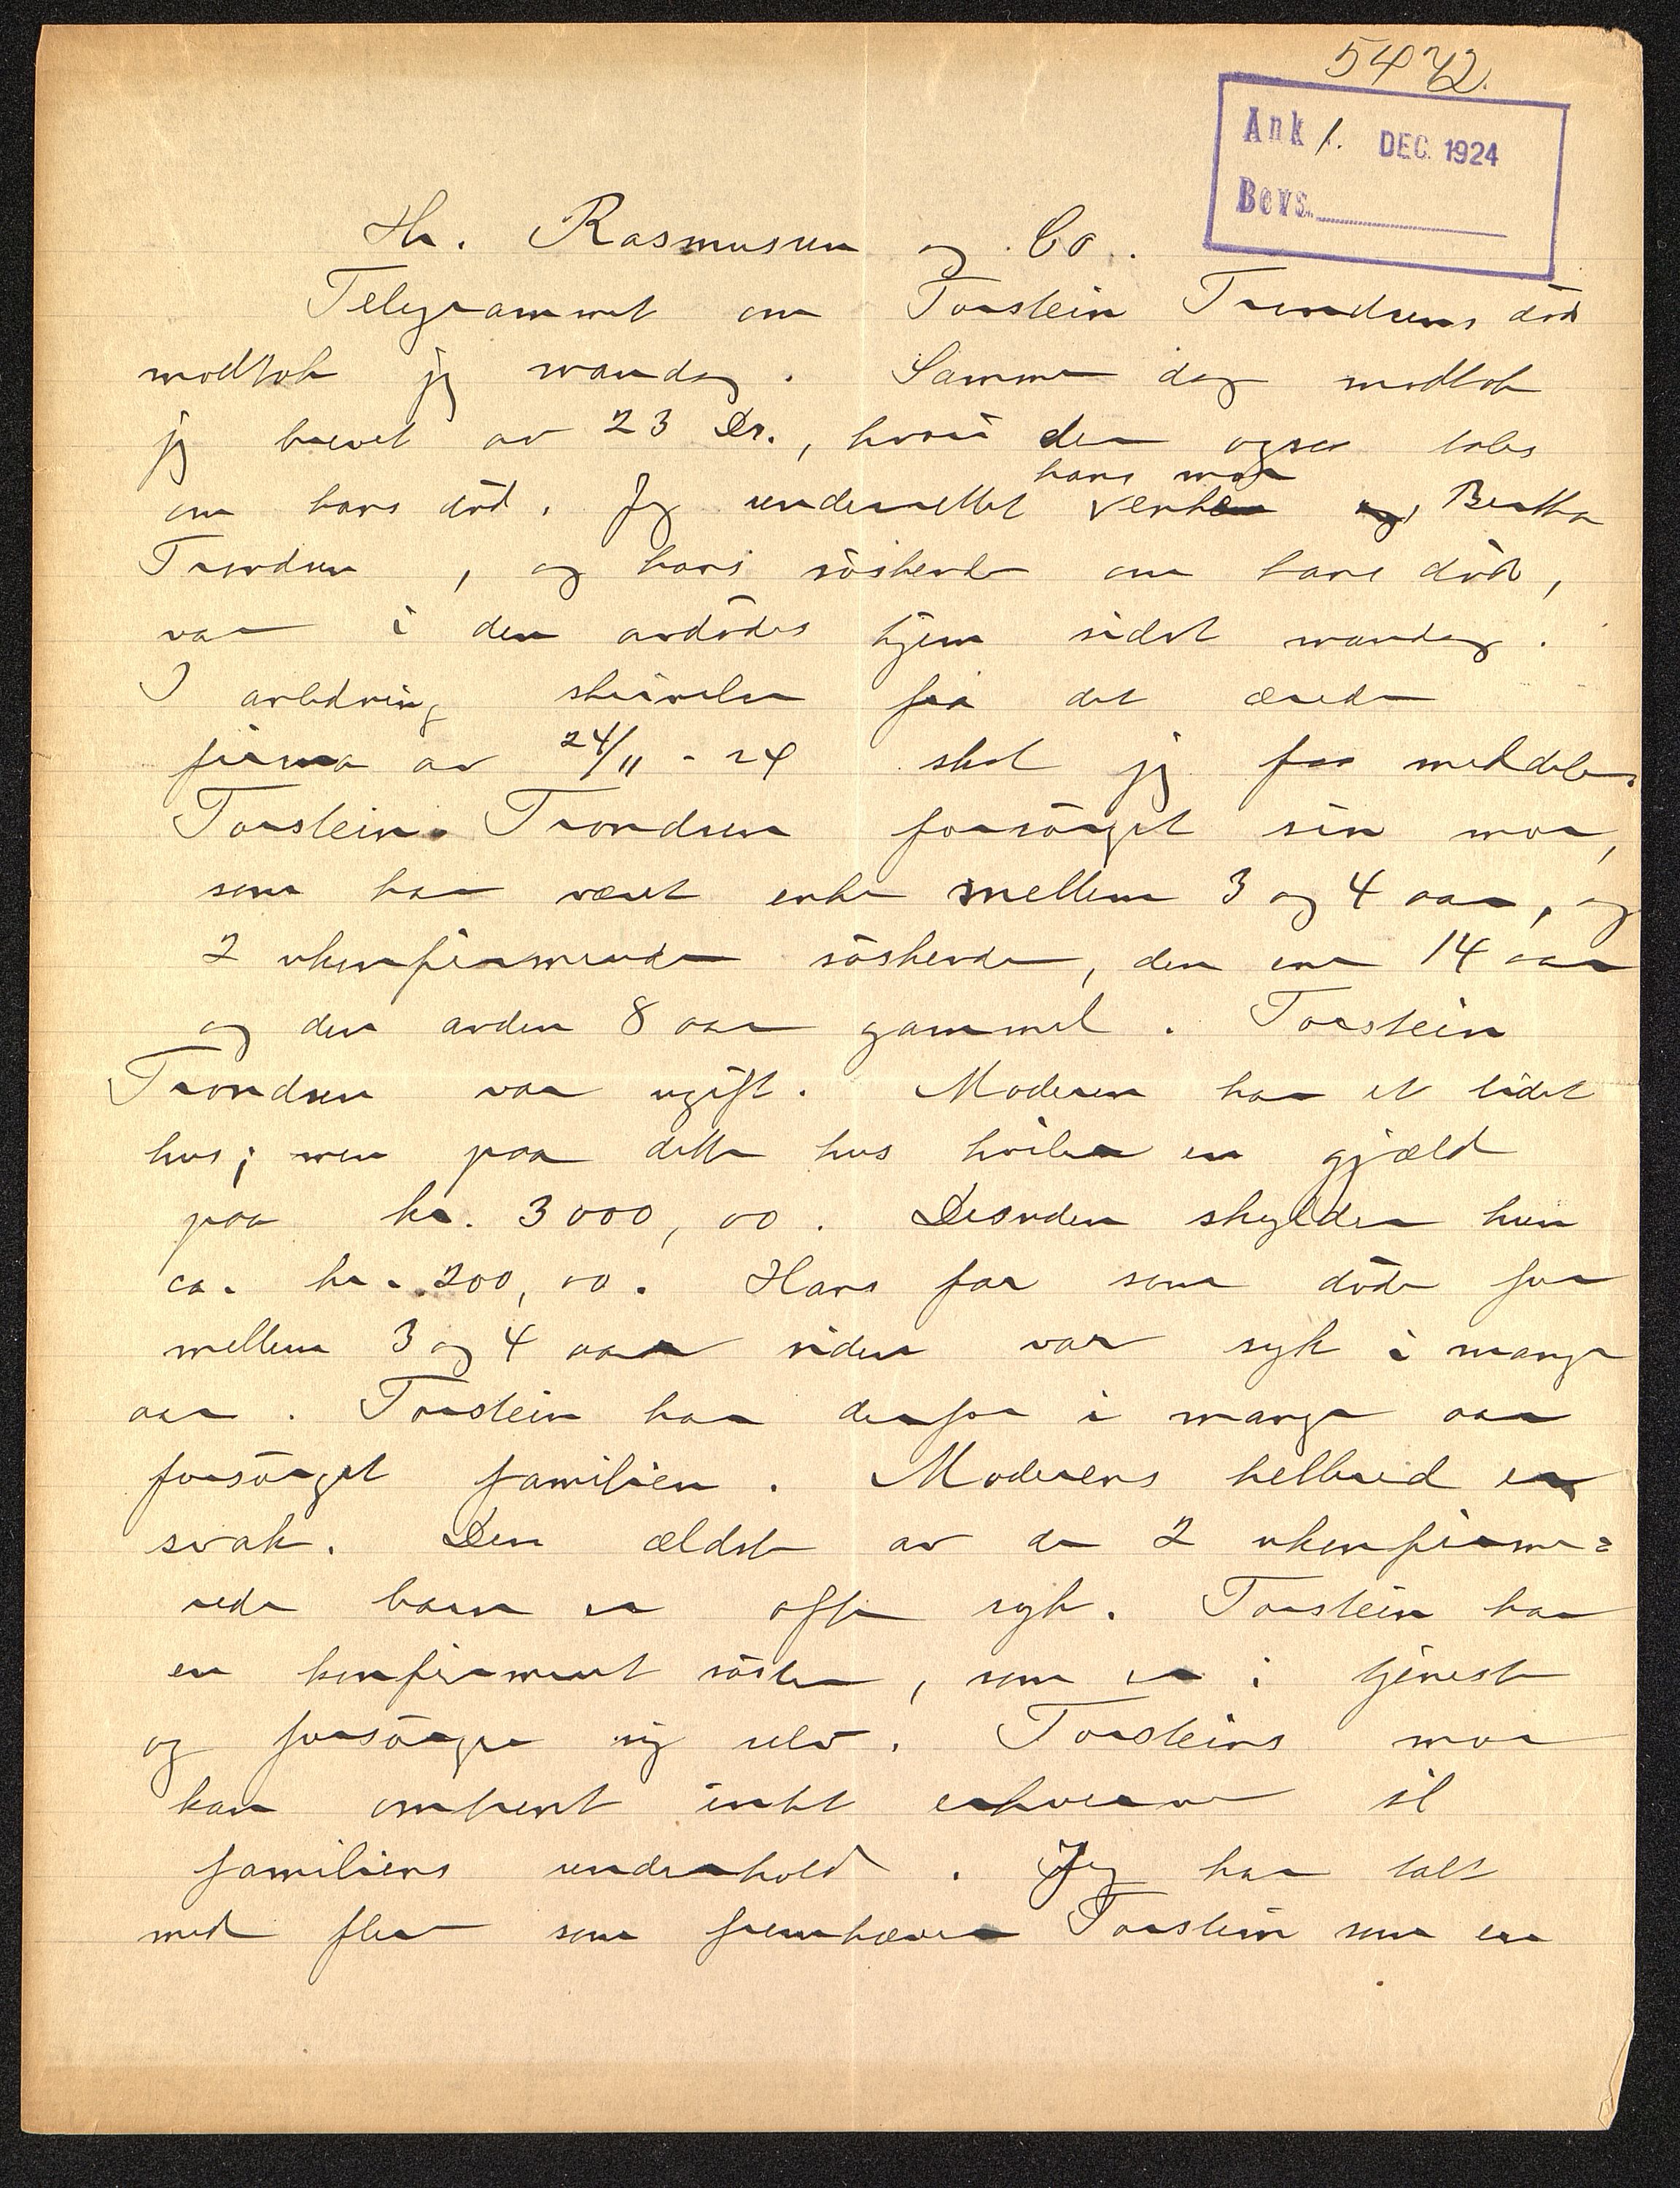 5472.
Ank 1. DEC. 1924
Besv.
Hr. Rasmussen og Co.
Telegrammet om Torstein Trondsens død
modtok jeg mandag. Samme dag modtok
jeg brevet av 23 Ds., hvori der ogsaa tales
hans mor
om hans død. Jeg underrettet enken og, Bertha
Trondsen, og hans søskende om hans død,
var i den avdødes hjem sidst mandag.
I anledning skrivelse fra det ærede
firma av 24/11-24 skal jeg faa meddele:
Torstein Trondsen forsørget sin mor,
som har været enke mellem 3 og 4 aar, og
2 ukonfirmerede søskende, den ene 14 aar
og den anden 8 aar gammel. Torstein
Trondsen var ugift. Moderen har et lidet
hus; men paa dette hus hviler en gjæld
paa kr. 3000,00. Desuden skylder hun
ca. kr. 200,00. Hans far som døde for
mellem 3 og 4 aar siden var syk i mange
aar. Torstein har derfor i mange aar
forsørget familien. Moderens helbred er
svak. Den ældste av de 2 ukonfirme=
rede barn er ofte syk. Torstein har
en konfirmert søster, som er i tjeneste
og forsørger sig selv. Torsteins mor
kan omtrent intet erhverve til
familiens underhold. Jeg har talt
med flere som fremhæver Torstein som en